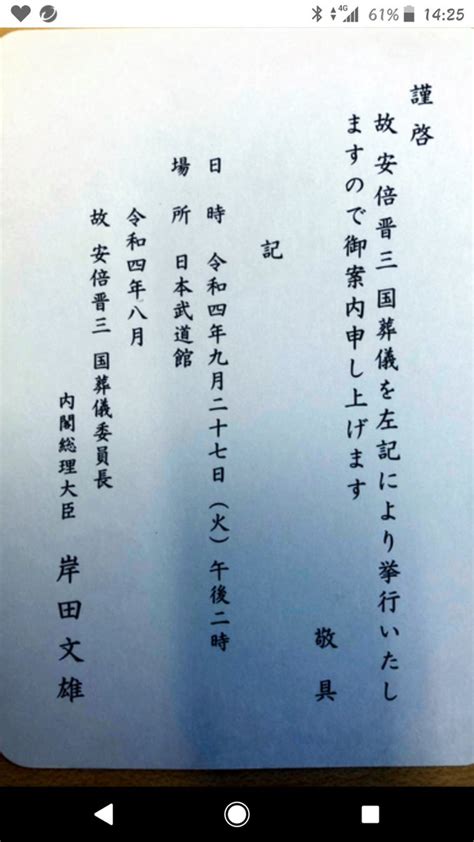 61% 14:25
4G
謹啓
故 安倍晋三 国葬儀を左記により挙行いたし
ますので御案内申し上げます
敬具
記
日時 令和四年九月二十七日(火)午後二時
場所 日本武道館
令和四年八月
故 安倍晋三 国葬儀委員長
内閣総理大臣 岸田文雄